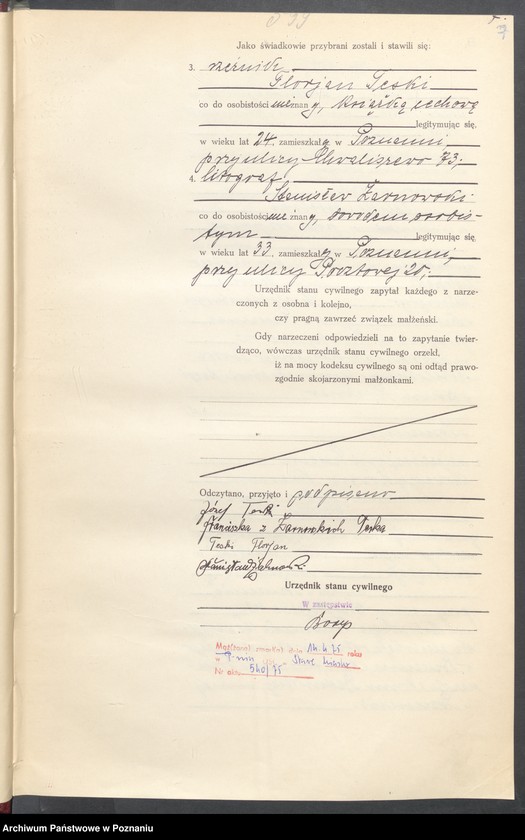 7
Jako świadkowie przybrani zostali i stawili się:
3. rzeźnik
Florjan Teski
co do osobistości nieznany, książką cechową
legitymując się,
w wieku lat 24, zamieszkały w Poznaniu,
przy ulicy Chwaliszewo 73;
4. litograf
Stanisław Żarnowski
co do osobistości nieznany, dowodem osobis-
tym legitymując się
w wieku lat 33, zamieszkały w Poznaniu,
przy ulicy Pocztowej 25;
Urzędnik stanu cywilnego zapytał każdego z narze-
czonych z osobna i kolejno,
czy pragną zawrzeć związek małżeński.
Gdy narzeczeni odpowiedzieli na to zapytanie twier-
dząco, wówczas urzędnik stanu cywilnego orzekł,
iż na mocy kodeksu cywilnego są oni odtąd prawo-
zgodnie skojarzonymi małżonkami.
Odczytano, przyjęto i podpisano
Józef Teski
Franciszka z Żarnowskich Teska
Teski Florjan
Stanisław Żarnowski
Urzędnik stanu cywilnego
W zastępstwie
Mąż(żona) zmarł(a) dnia 14.4.75 roku
w Poznaniu Stare Miasto
Nr aktu 560/75
Archiwum Państwowe w Poznaniu